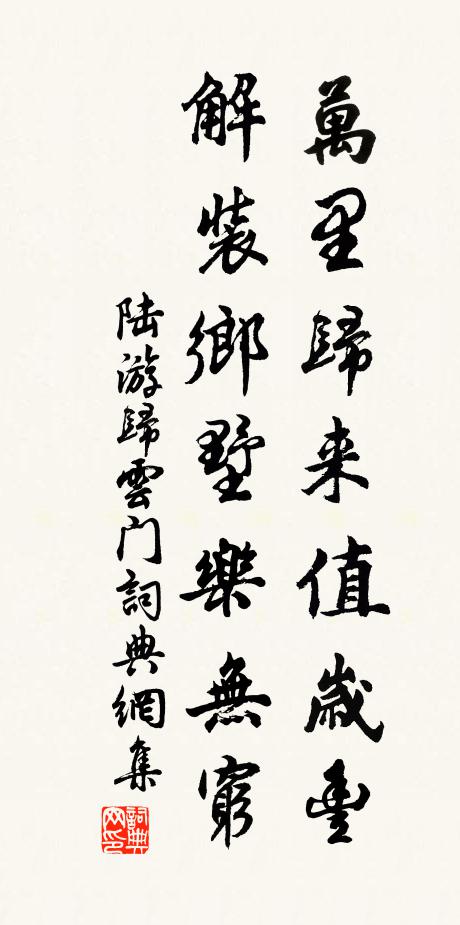 萬里歸来值歲豐
解裝鄉墅樂無窮
陸游歸雲门詞典網集
詞典网印